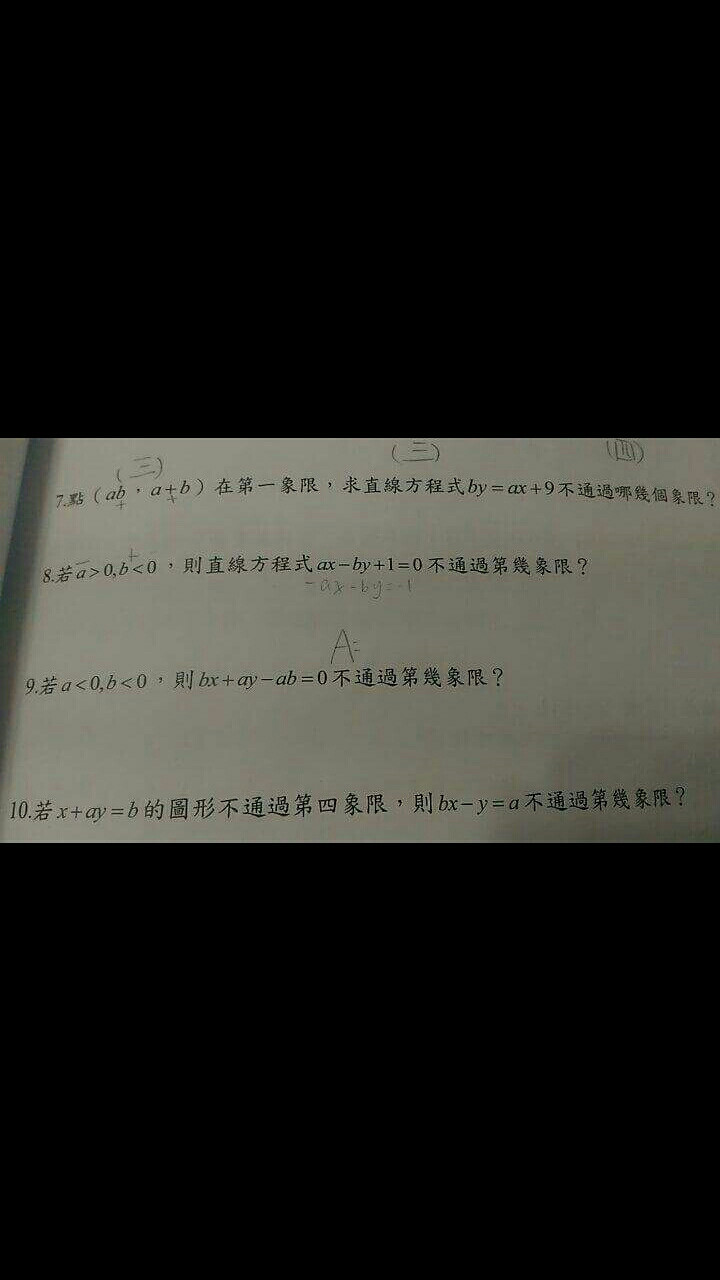 (三) (三) (四)
7.點(ab,a+b)在第一象限,求直線方程式by=ax+9不通過哪幾個象限?
+ +
− +
8.若a>0,b<0,則直線方程式ax−by+1=0不通過第幾象限?
-ax-by=-1
A:
9.若a<0,b<0,則bx+ay−ab=0不通過第幾象限?
10.若x+ay=b的圖形不通過第四象限,則bx−y=a不通過第幾象限?